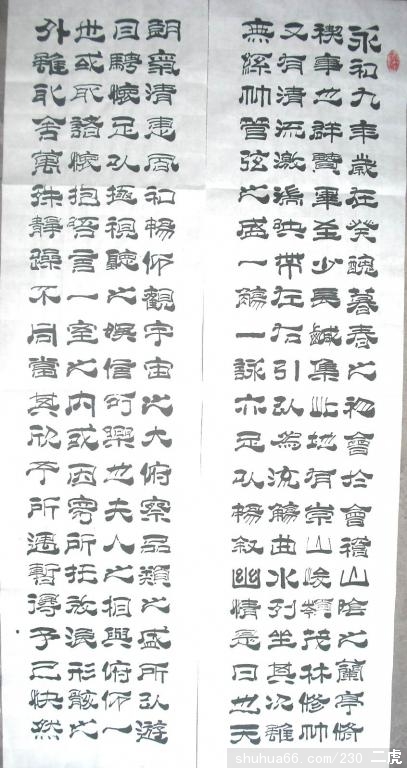 永和九年歲在癸醜暮春之初會於會稽山陰之蘭亭脩
禊事也群賢畢至少長鹹集此地有崇山峻嶺茂林修竹
又有清流激湍映帶左右引以為流觴曲水列坐其次雖
無絲竹管弦之盛一觴一詠亦足以暢敘幽情是日也天
朗氣清惠風和暢仰觀宇宙之大俯察品類之盛所以遊
目騁懷足以極視聽之娛信可樂也夫人之相與俯仰一
世或取諸懷抱悟言一室之內或因寄所托放浪形骸之
外雖取舍萬殊靜躁不同當其欣于所遇暫得于己快然
shuhua66.com/230 二虎